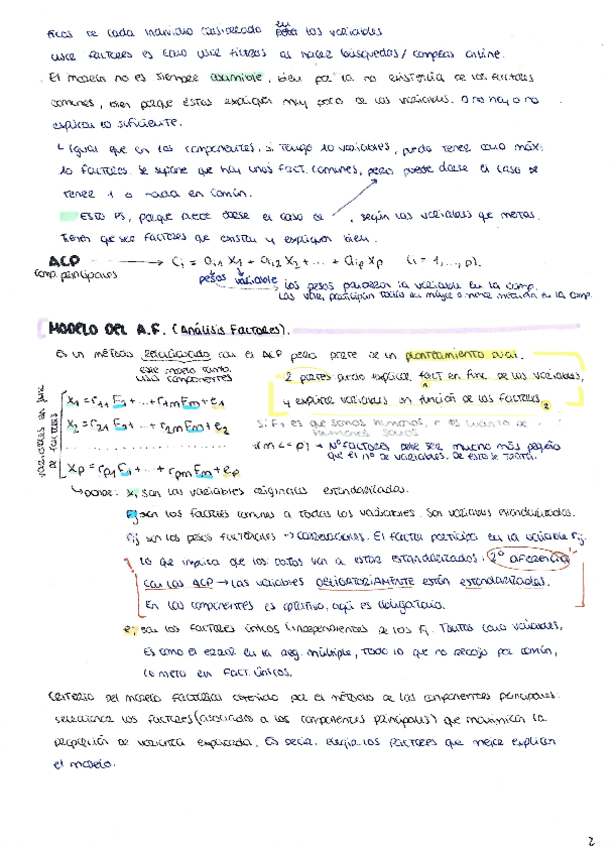 ficas de cada individuo considerado en las variables
usar factores es como usar filtros al hacer búsquedas/compras online.
El modelo no es siempre asumible, bien por la no existencia de los factores
comunes, bien porque éstos expliquen muy poco de las variables. O no hay o no
explican lo suficiente.
Igual que en las componentes, si tengo 10 variables, puedo tener como máx.
10 factores. Se supone que hay unos fact. comunes, pero puede darse el caso de
tener 1 o nada en común.
Esto es, porque puede darse el caso de , según las variables que metas.
Tienen que ser factores que existan y expliquen bien.
ACP → Ci = ai1 X1 + ai2 X2 + ... + aip Xp (i = 1, ..., p).
comp. principales
pesos variable
los pesos ponderan la variable en la comp.
Las var. participan todas en mayor o menor medida en la comp.
MODELO DEL A.F. (Análisis Factores).
Es un método relacionado con el ACP pero parte de un planteamiento dual.
este modelo tanto
usas componentes
2 partes: puedo explicar fact en func de las variables, 1
y explicar variables en función de los factores. 2
variables en func de factores
X1 = r11 F1 + ... + r1m Fm + e1
X2 = r21 F1 + ... + r2m Fm + e2
Si F1 es que somos humanos, r es cuánto de
humanos somos
..............................
(m <= p) → Nº factores debe ser mucho más pequeño
que el nº de variables. De esto se trata.
Xp = rp1 F1 + ... + rpm Fm + ep
Donde: Xi son las variables originales estandarizadas.
Fj son los factores comunes a todas las variables. Son variables estandarizadas.
rij son los pesos factoriales → correlaciones. El factor participa en la variable rij.
Lo que implica que los datos van a estar estandarizados. 2ª diferencia
con las ACP → las variables OBLIGATORIAMENTE están estandarizadas.
En las componentes es optativo, aquí es obligatorio.
ei son los factores únicos (independientes de los Fj. Tantos como variables.
Es como el error en la reg. múltiple, todo lo que no recojo por común,
lo meto en fact. únicos.
Criterio del modelo factorial obtenido por el método de las componentes principales:
seleccionar los factores (asociados a las componentes principales) que maximicen la
proporción de varianza explicada. Es decir, elegir los factores que mejor expliquen
el modelo.
2